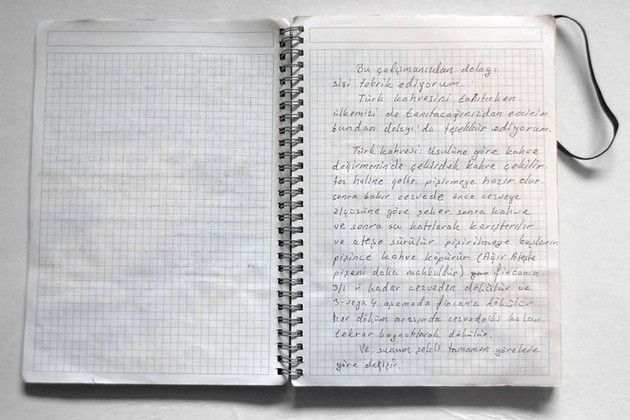 Bu çalışmanızdan dolayı
sizi tebrik ediyorum.
Türk kahvesini tanıtırken
ülkemizi de tanıtacağınızdan eminim
bundan dolayı'da teşekkür ediyorum.
Türk kahvesi: Usulüne göre kahve
değirmeninde çekirdek kahve çekilir
toz haline gelir pişirmeye hazır olur
sonra bakır cezvede önce cezveye
ölçüsüne göre şeker sonra kahve
ve sonra su katılarak karıştırılır
ve ateşe sürülür pişirilmeye başlanır
pişince kahve köpürür (Ağır Ateşte
pişeni daha makbuldür) fincanın
3/1 ü kadar cezveden dökülür ve
3-veya 4 aşamada fincana dökülür
her döküm arasında cezvedeki kalan
tekrar kaynatılarak dökülür.
Ve sunum şekli tamamen yörelere
göre değişir